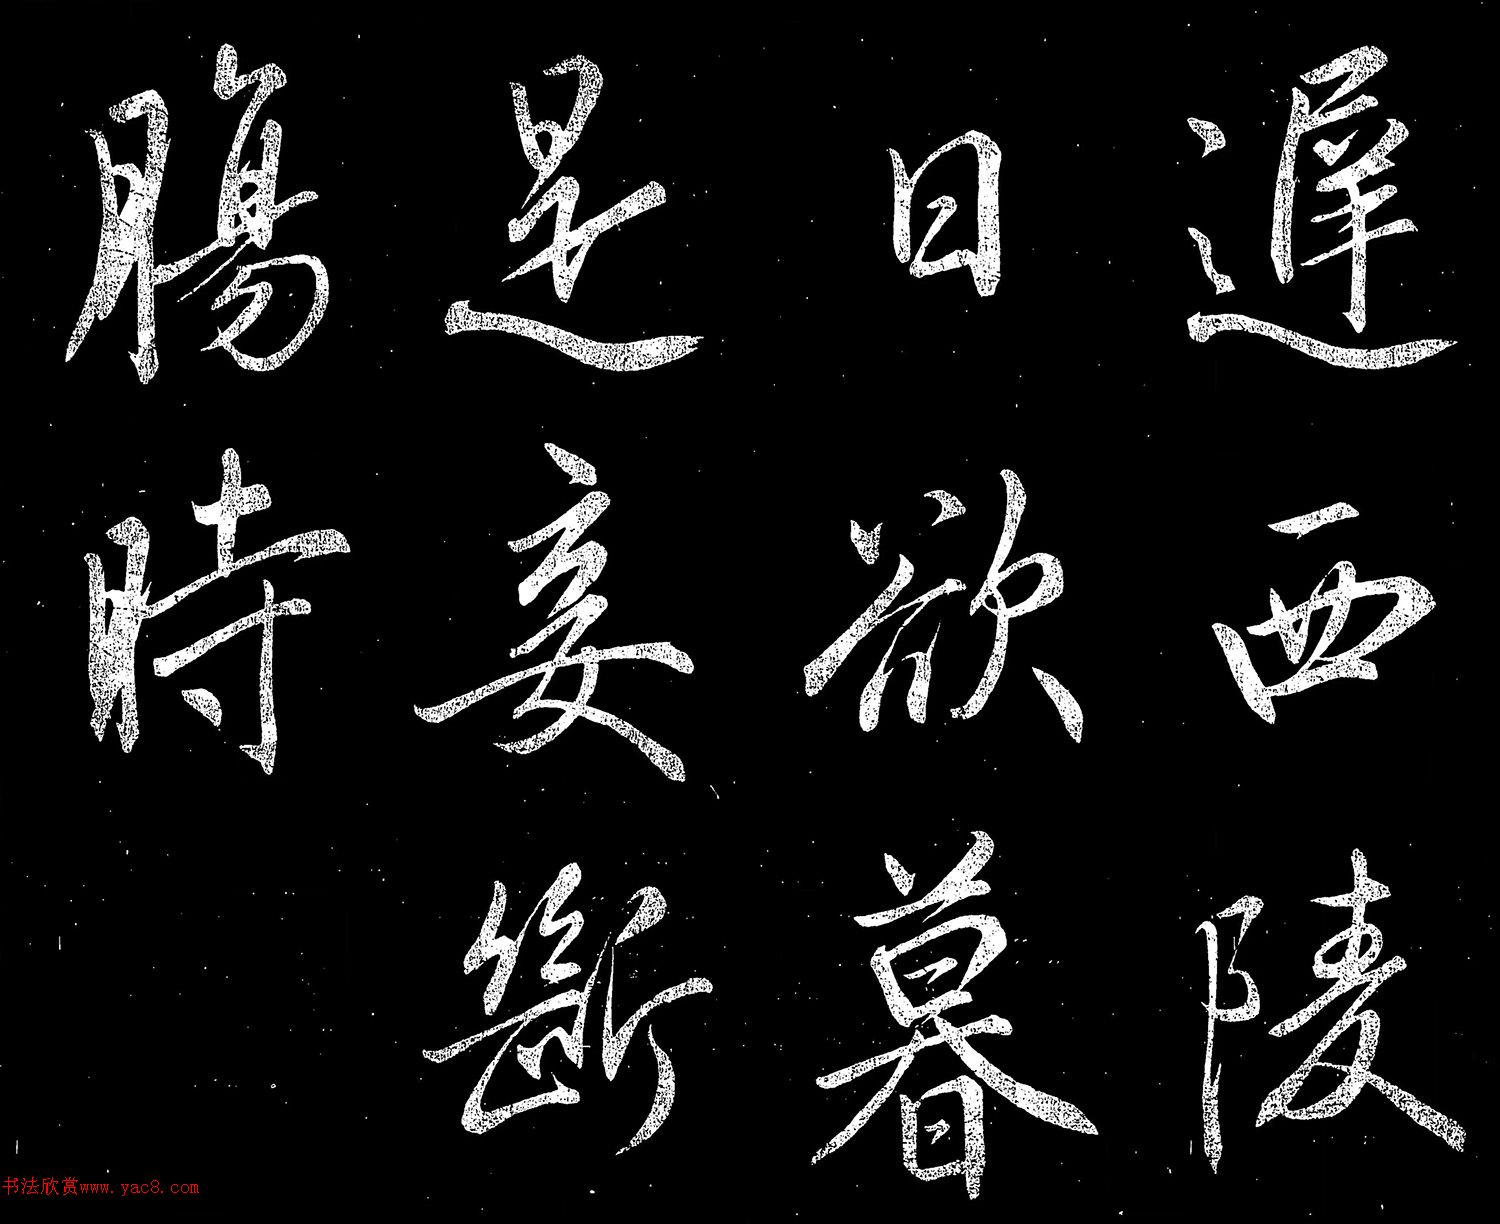 遲西陵
日欲暮
是妾斷
腸時
书法欣赏www.yac8.com